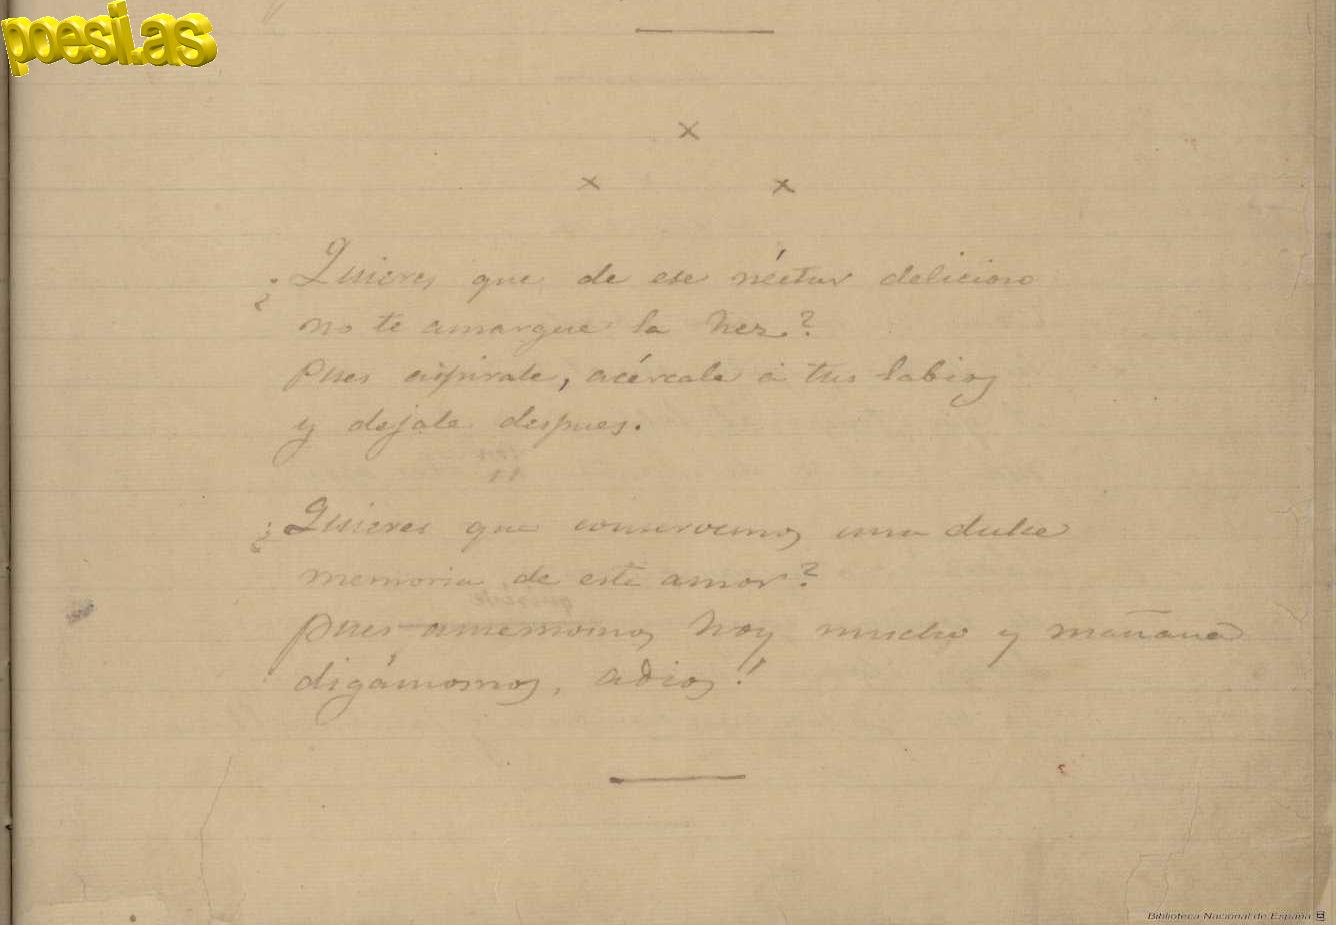 poesi.as
¿Quieres que de ese néctar delicioso
no te amargue la hez?
pues aspirale, acércale á tus labios
y dejale despues.
¿Quieres que conservemos una dulce
memoria de este amor?
pues amemonos hoy mucho y mañana
digámonos, adios!
Biblioteca Nacional de España